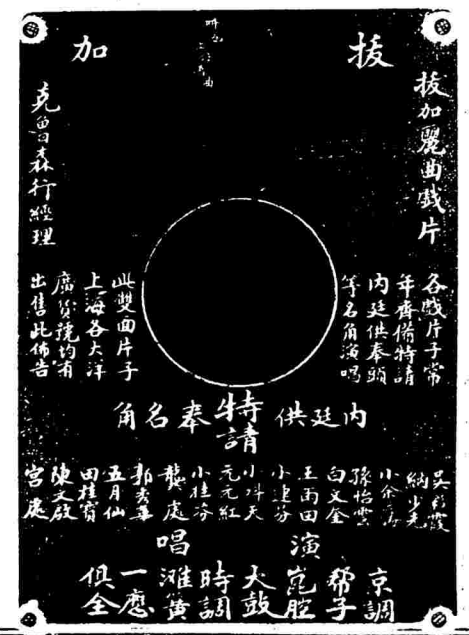 拔加
拔加麗曲戲片
各戲片子常
年齊備特請
内廷供奉頭
等名角演唱
此雙面片子
上海各大洋
廣貨號均有
出售此佈告
克魯森行經理
特請
内廷供奉名角
吳彩霞
納少先
小余
孫怡雲
白文奎
王雨田
小連芬
小叫天
元元紅
小桂芬
龔處
郭秀華
五月仙
田桂寶
陳文啟
宮處
演唱
京調
幫子
崑腔
大鼓
時調
灘簧
一應
俱全